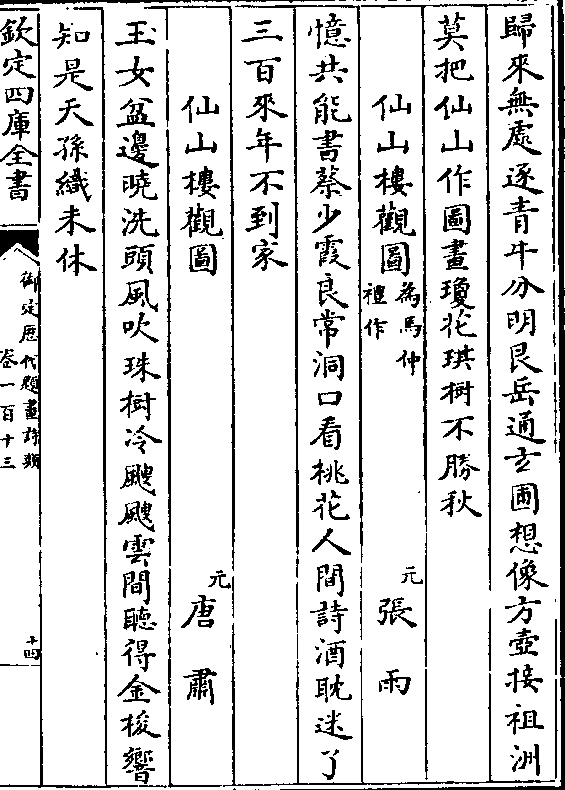 歸來無處逐青牛分明艮岳通玄圃想像方壺接祖洲
莫把仙山作圖畫瓊花琪樹不勝秋
仙山樓觀圖 為馬仲禮作 元 張雨
憶共能書蔡少霞良常洞口看桃花人間詩酒耽迷了
三百來年不到家
仙山樓觀圖 元 唐肅
玉女盆邊曉洗頭風吹珠樹冷颼颼雲間聽得金梭響
知是天孫織未休
欽定四庫全書 御定歷代題畫詩類 卷一百十三 十四